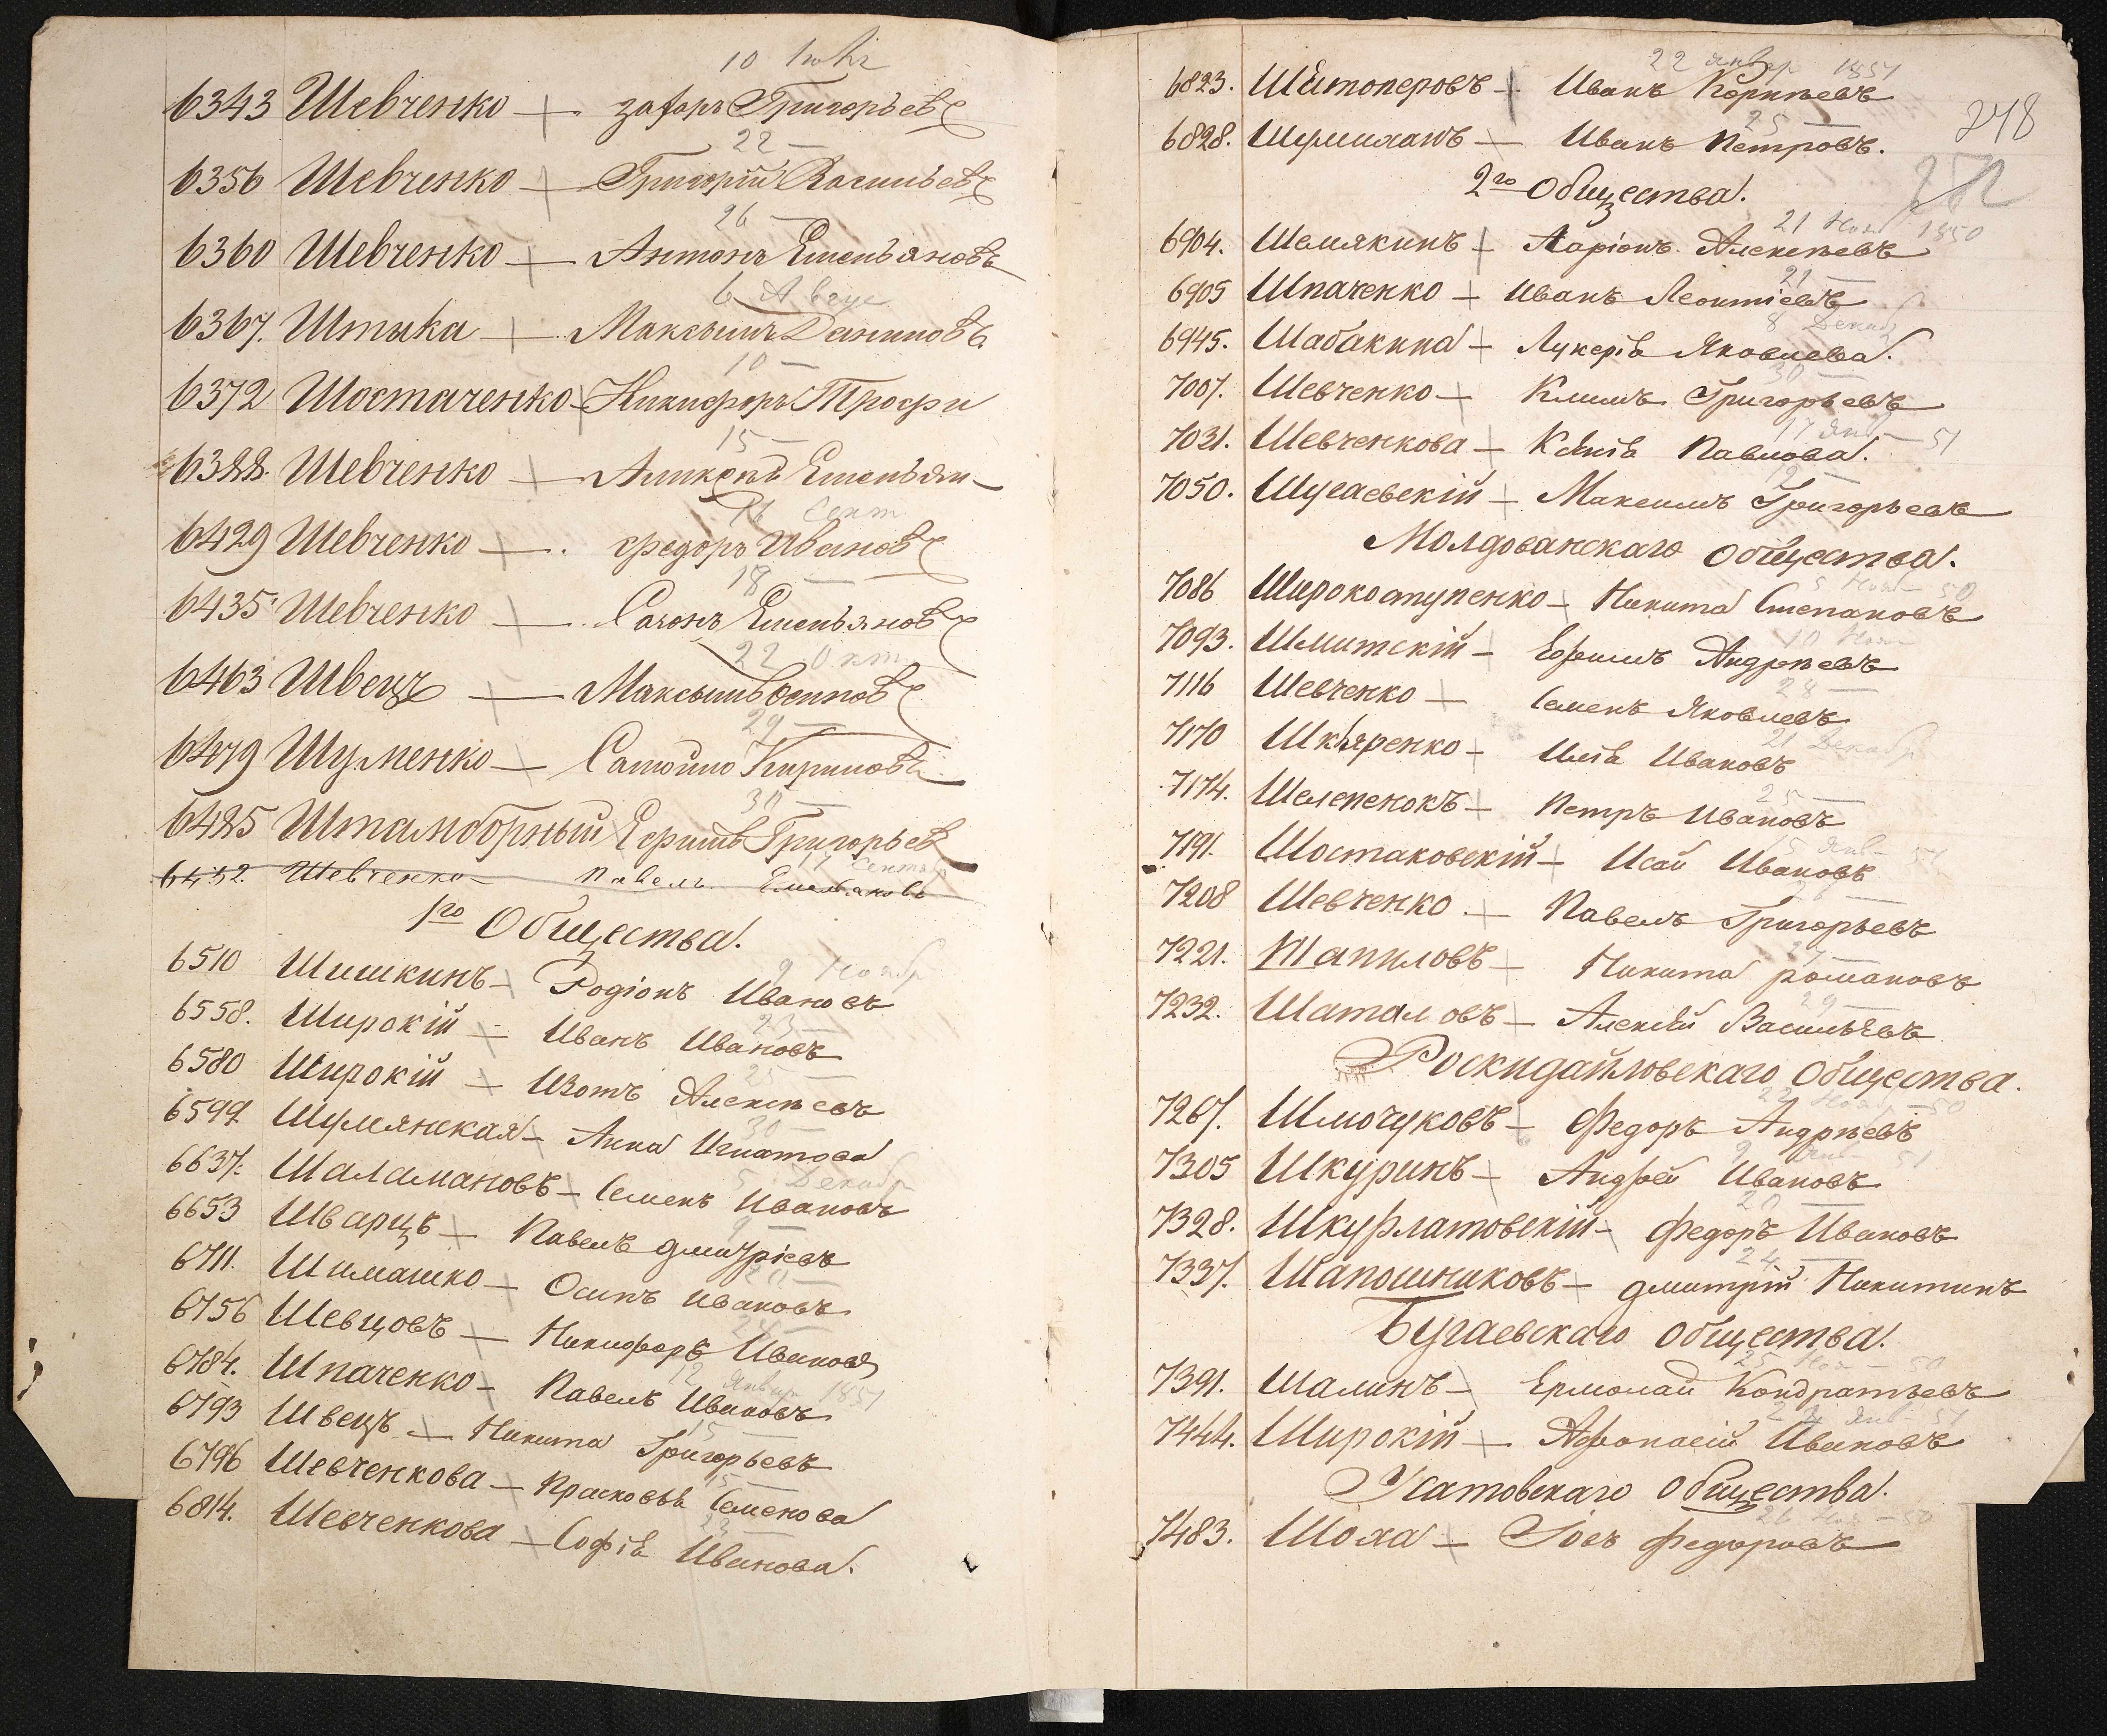 10
6343 Шевченко — Григорьевъ
22 —
6356 Шевченко — Григорій Васильевъ
26 —
6360 Шевченко — Антонъ Емельяновъ
6 Авгус
6367. Штыка — Максымъ Даниловъ
10 —
6372 Шостаченко — Никифоръ Трофи
15 —
6388. Шевченко — Емельян
16 Сент.
6429 Шевченко — федоръ Ивановъ
18 —
6435 Шевченко — Емельяновъ
22 Окт
6463 Швецъ — Максымъ Осиповъ
29 —
6479 Шуменко — Самойло Кириловъ
30 —
6485 Ефимъ Григорьевъ
17 Сентябр
6432. Шевченко — Павелъ Емельяновъ
1го Общества.
9 Ноябр
6510 Шишкинъ — Родіонъ Ивановъ
23 —
6558. Широкій — Иванъ Ивановъ
25 —
6580 Широкій — Изотъ Алексѣевъ
30 —
6599 Шумлянская — Анна Игнатова
5 Декабр
6637. Шаламановъ — Семенъ Ивановъ
9 —
6653 Шварцъ — Павелъ Дмитріевъ
6711. Шимашко — Осипъ Ивановъ
6756 Шевцовъ — Никифоръ Ивановъ
12 Январ 1851
6784. Шпаченко — Павелъ Ивановъ
15 —
6793 Швецъ — Никита Григорьевъ
15 —
6796 Шевченкова — Прасковья Семенова
6814. Шевченкова — Софія Иванова.
22 январ 1851
6823. Иванъ Корнѣевъ
25 —
248
6828. Иванъ Петровъ.
252
2го Общества.
21 Ноя 1850
6904. Шемякинъ — Ларіонъ Алексѣевъ
6905 Шпаченко — Иванъ Леонтіевъ
8 Декаб
6945. Шабакина — Лукерія Яковлева.
30 —
7007. Шевченко — Климъ Григорьевъ
17 Янв — 51
7031. Шевченкова — Ксенія Павлова.
7050. Шугаевскій — Максимъ Григорьевъ
Молдованскаго общества.
5 Ноя — 50
7086 Широкоступенко — Никита Степановъ
10 Ноя
7093. Шмитскій — Ефимъ Андрѣевъ
28 —
7116 Шевченко — Семенъ Яковлевъ
21 Декабр
7170 Шкляренко — Илія Ивановъ
25 —
7174. Шелепенокъ — Петръ Ивановъ
5 Янв 51
7191. Шостаковскій — Исай Ивановъ
7208 Шевченко — Павелъ Григорьевъ
7221. Шапиловъ — Никита романовъ
29 —
7232. Шаталовъ — Алексѣй Васильевъ
Роскидайловскаго Общества.
22 Ноя — 50
7267. Шмочуковъ — Федоръ Андрѣевъ
7305 Шкуринъ — Андрей Ивановъ
20 —
7328. Шкурлатовскій — федоръ Ивановъ
24 —
7337. Шапошниковъ — дмитрій Никитинъ
Бугаевскаго общества.
25 Ноя — 50
7391. Шалинъ — Ермолай Кондратьевъ
7444. Широкій — Афонасій Ивановъ
Усатовскаго Общества.
26 Ноя — 50
7483. федоровъ